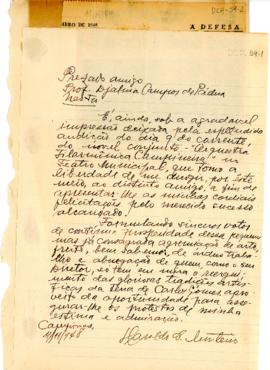 DCA-59-2
A DEFESA
Prezado amigo
Prof. Djalma Campos de Pádua
Nesta
É, ainda, sob a agradavel
impressão deixada pela esplendida
audição do dia 9 do corrente,
do novel conjunto - "Orquestra
Filarmônica Campineira" no
Teatro Municipal, que tomo a
liberdade de me dirigir, por este
meio, ao distinto amigo, a fim de
apresentar-lhe as minhas cordiais
felicitações pelo merecido sucesso
alcançado.
Formulando sinceros votos
de contínua prosperidade dessa
mas já consagrada agremiação de arte,
fruto, bem sabemos, de arduo traba-
lho e abnegação de quem, como o seu
Diretor, só tem em mira o reergui-
mento das gloriosas tradições artis-
ticas da terra de Carlos Gomes, apro-
veito da oportunidade para
os protestos de minha
estima e admiração.
Campinas,